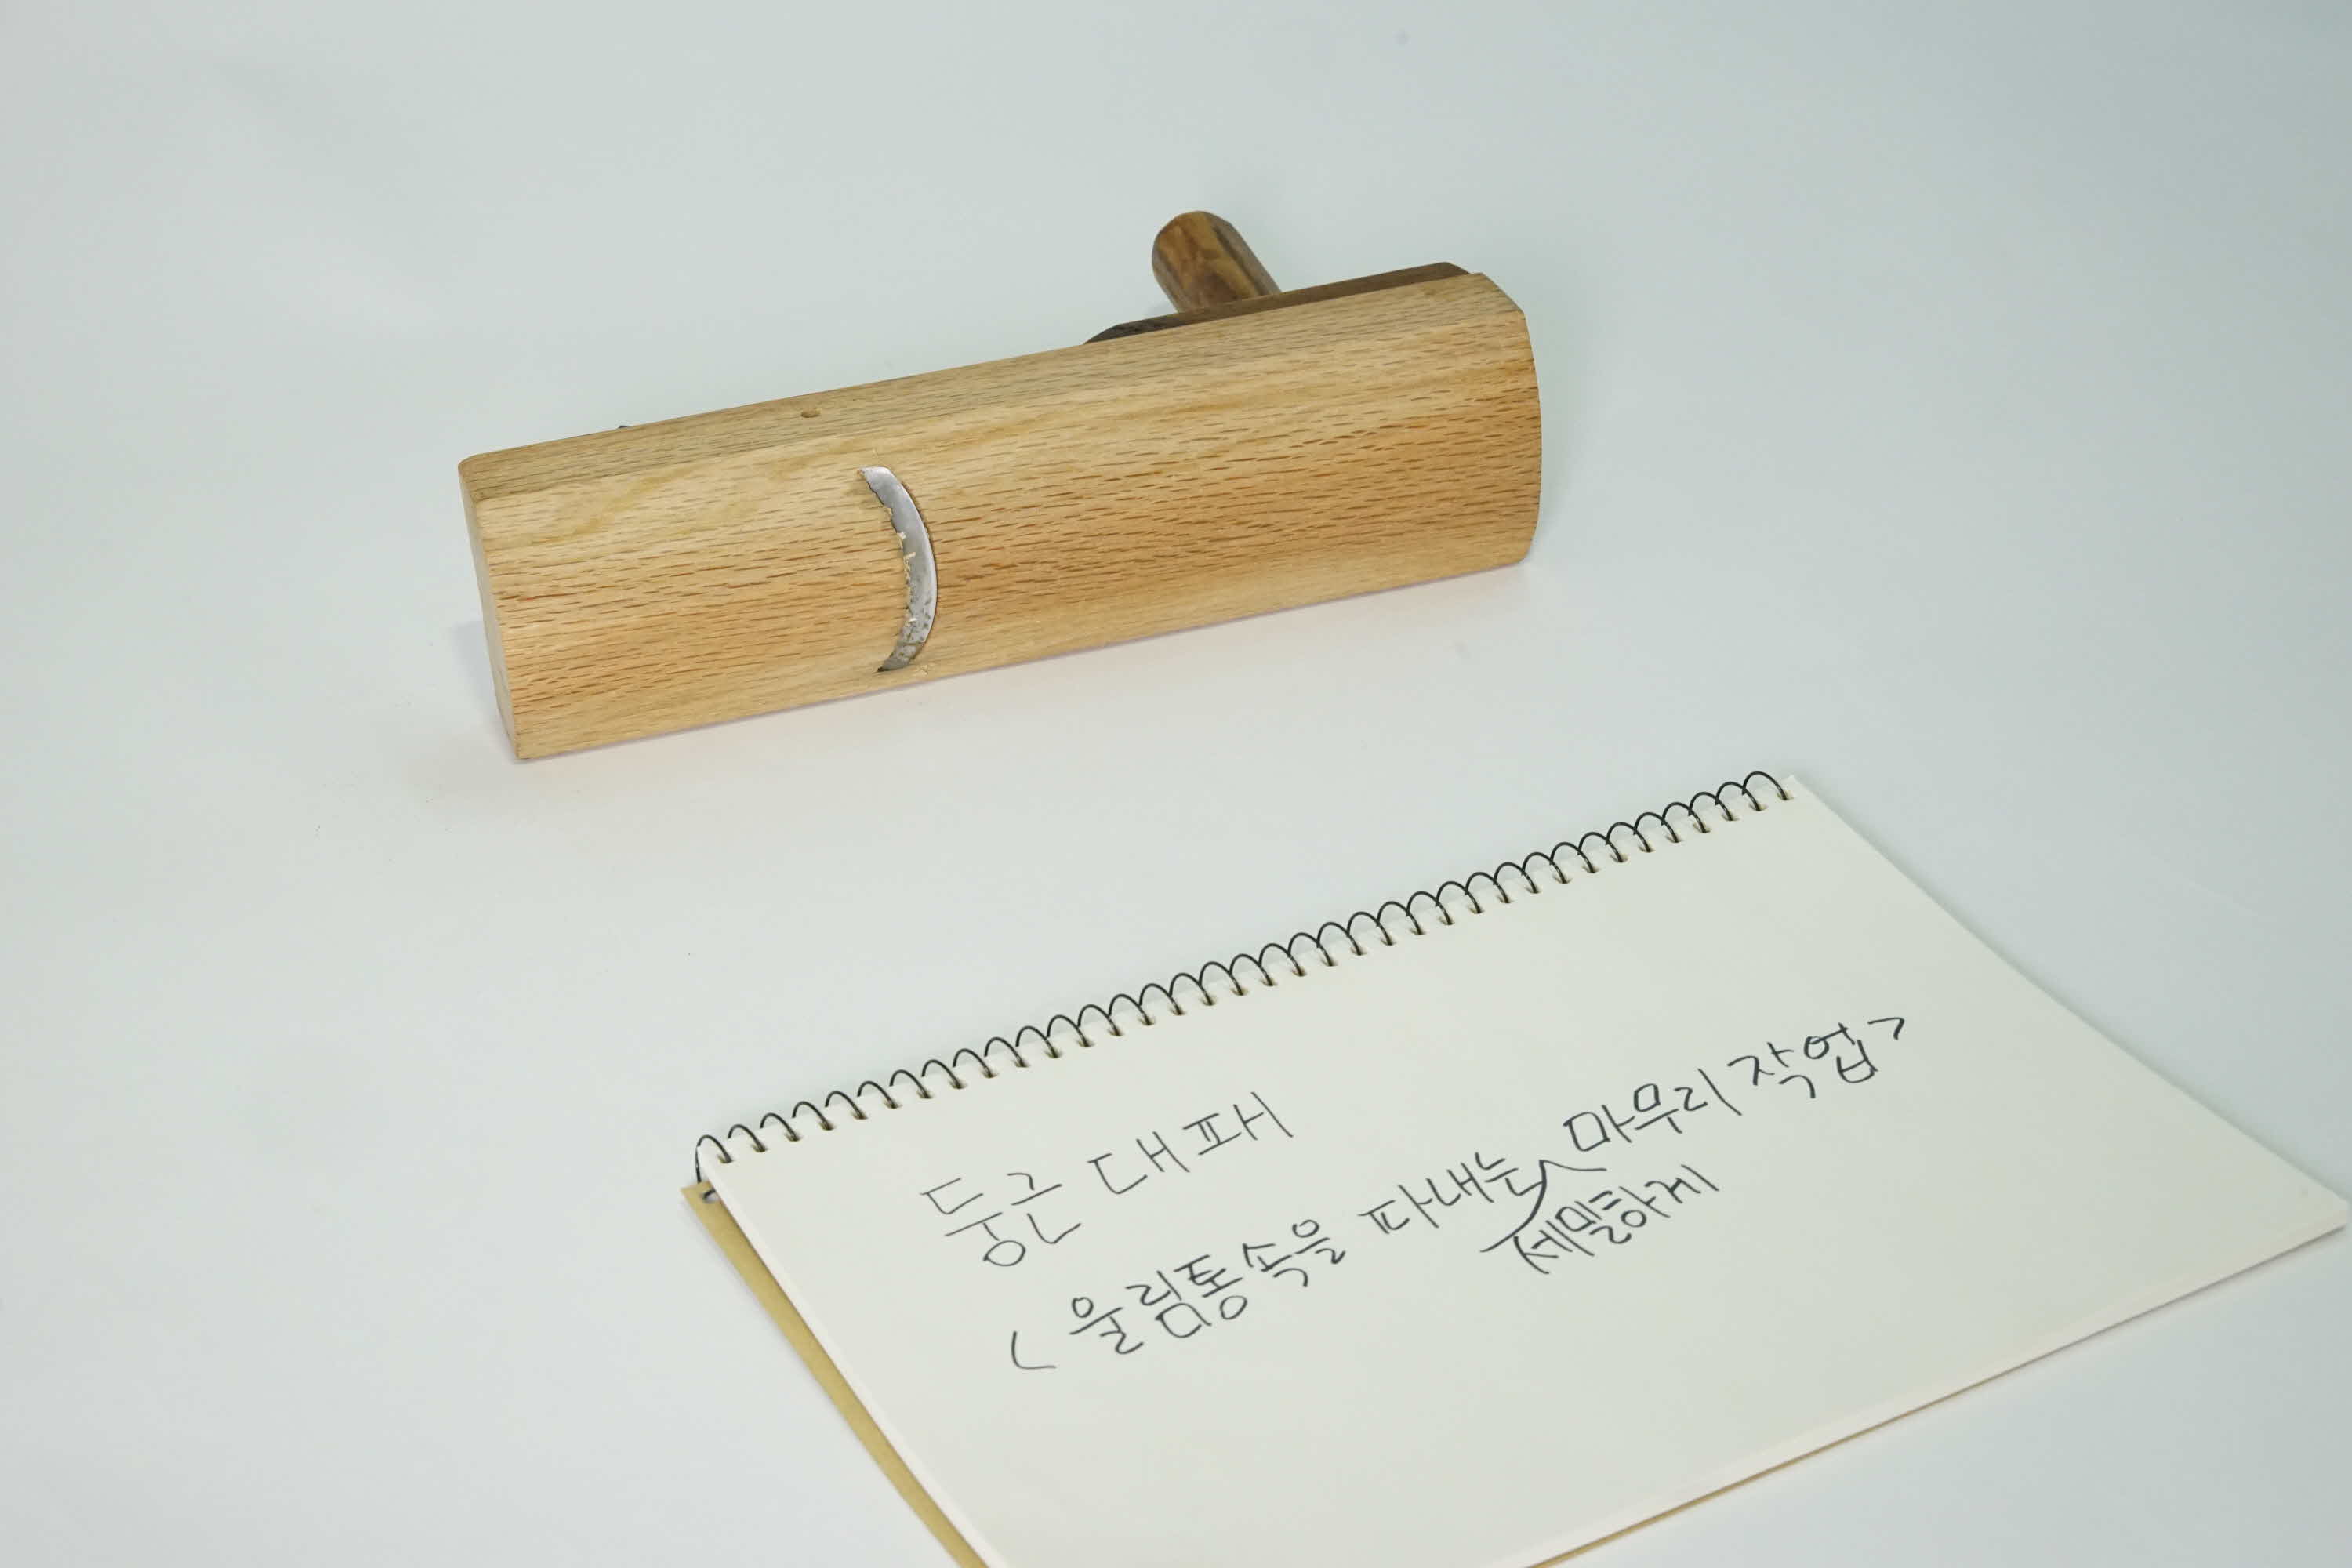 둥근 대패
<울림통속을 파내는 마무리 작업>
세밀하게